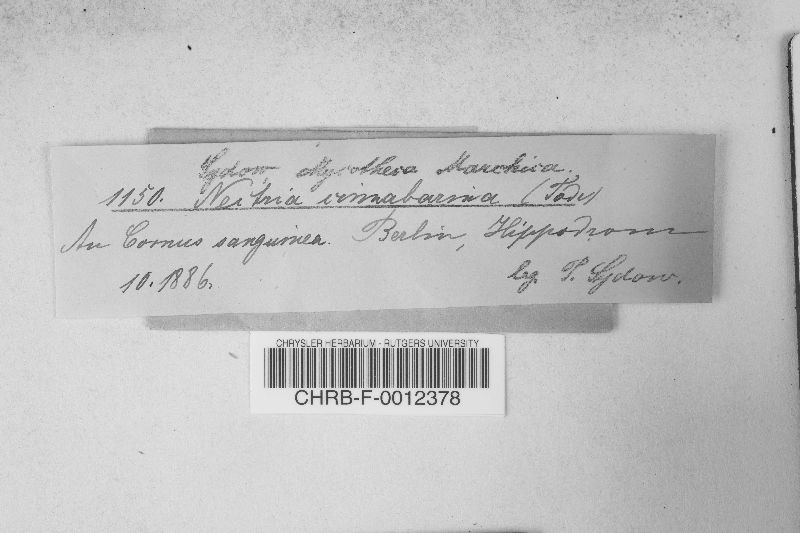 Sydow, Mycotheca Marchica.
1150. Nectria cinnabarina (Tode)
An Cornus sanguinea. Berlin, Hippodrom
10. 1886. leg. P. Sydow.
CHRYSLER HERBARIUM - RUTGERS UNIVERSITY
CHRB-F-0012378